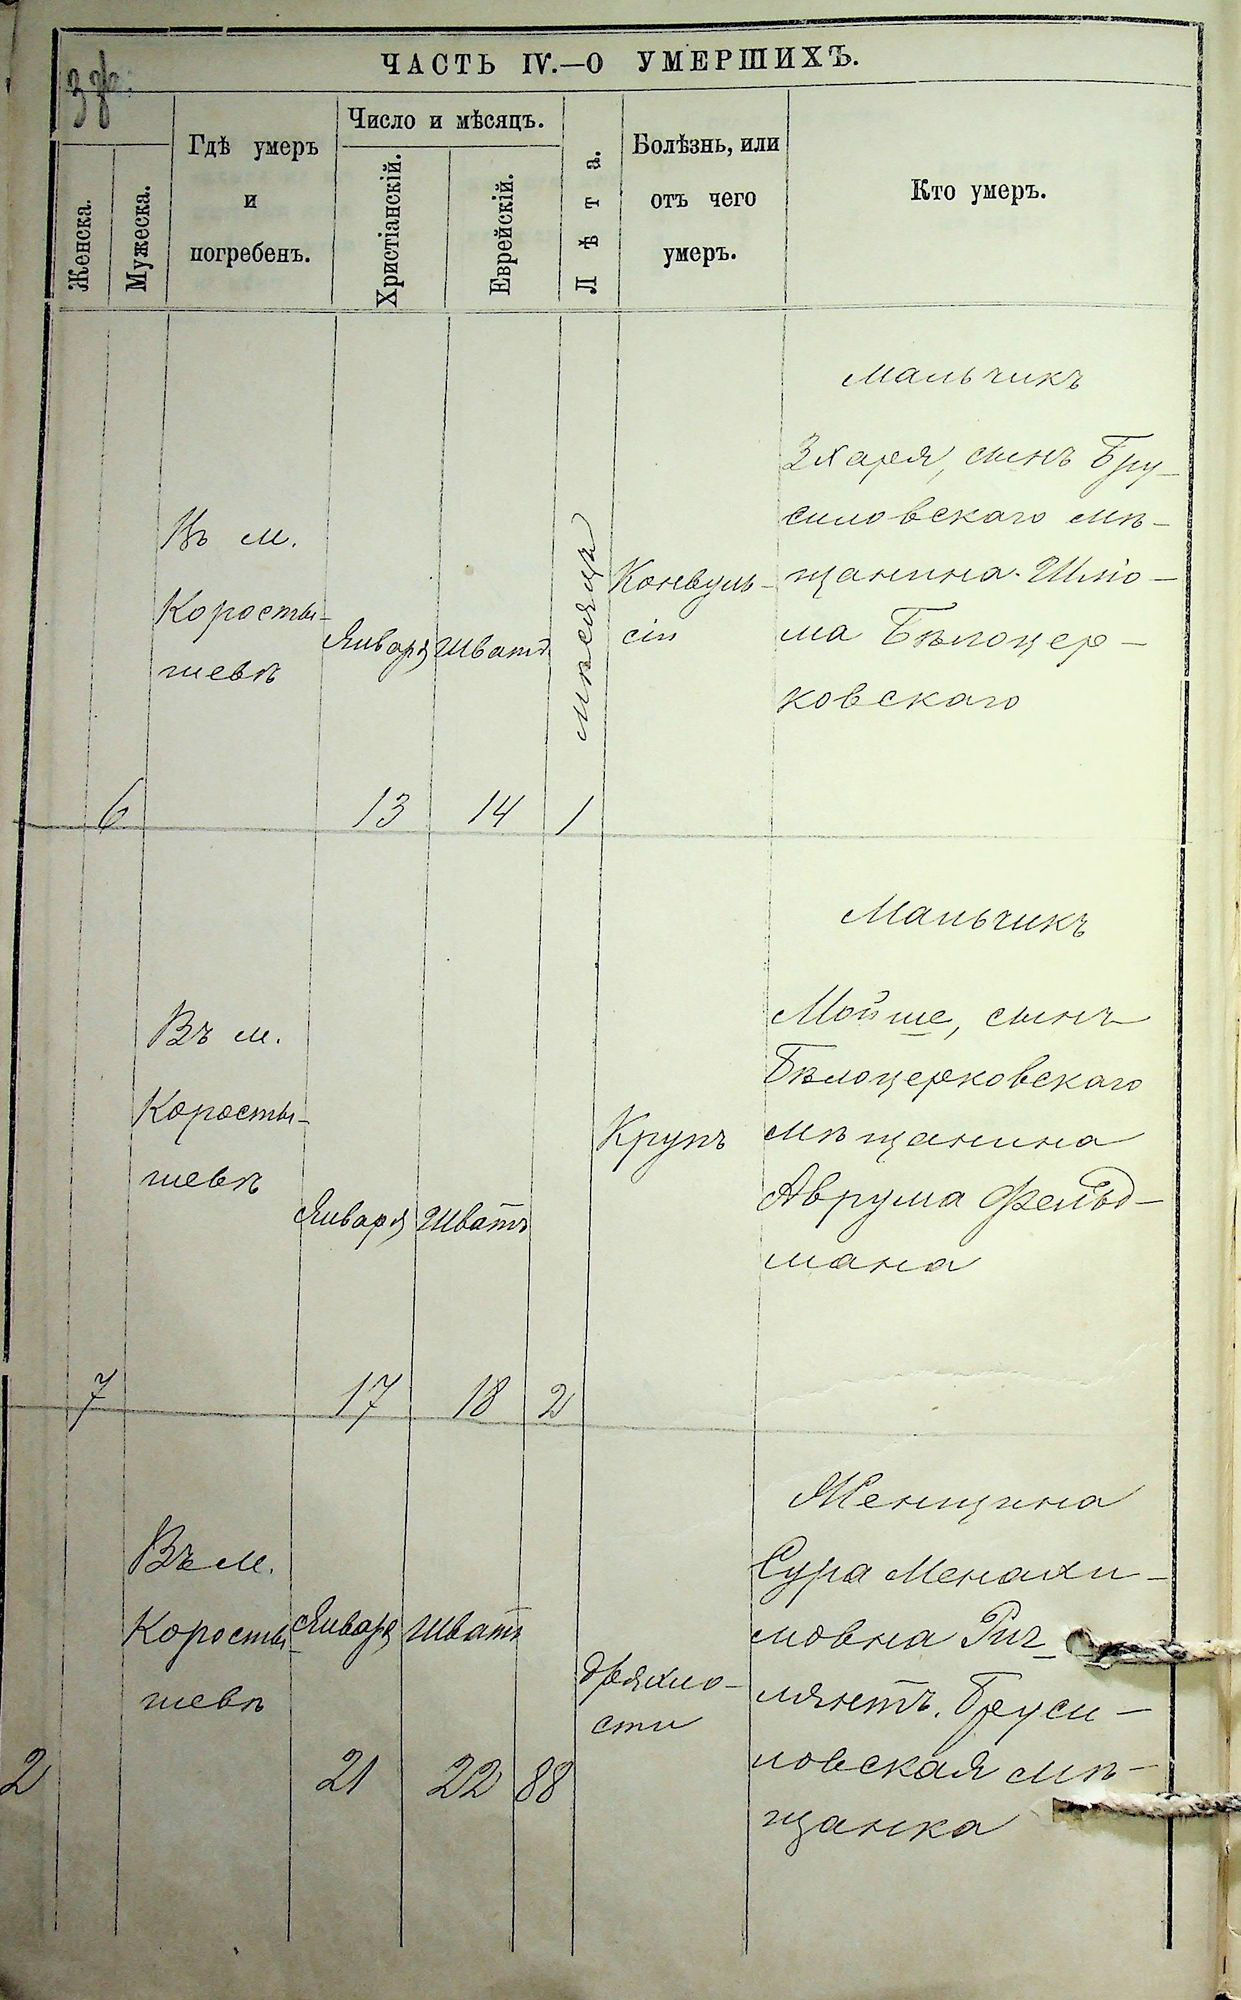 ЧАСТЬ IV.—О УМЕРШИХЪ.
Женска.
Мужеска.
Гдѣ умеръ
и
погребенъ.
Число и мѣсяцъ.
Христіанскій.
Еврейскій.
Лѣта.
Болѣзнь, или
отъ чего
умеръ.
Кто умеръ.
6
Въ м.
Коросты-
шевѣ
Января
13
Шватъ
14
мѣсяца
1
Конвуль-
сіи
Мальчикъ
Зхаря, сынъ Бру-
силовскаго мѣ-
щанина Шлio-
ма Бѣлоцер-
ковскаго
7
Въ м.
Коросты-
шевѣ
Января
17
Шватъ
18
2
Крупъ
Мальчикъ
Мойше, сынъ
Бѣлоцерковскаго
мѣщанина
Аврума Фельд-
мана
2
Въ м.
Коросты-
шевѣ
Января
21
Шватъ
22
88
дряхло-
сти
Женщина
Сура Менахи-
мовна
Бруси-
ловская мѣ-
щанка